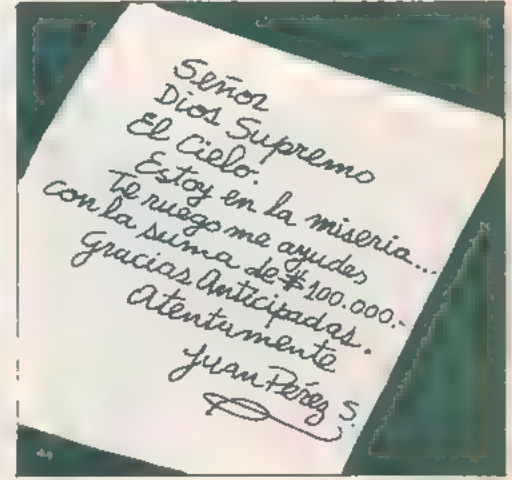 Señor
Dios Supremo
El Cielo.
Estoy en la miseria...
Te ruego me ayudes
con la suma de $100.000.-
Gracias Anticipadas.
Atentamente
Juan Pérez S.